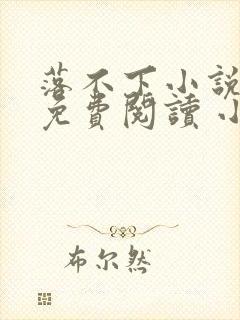 落不下小說
免費閱讀 小
布尔然